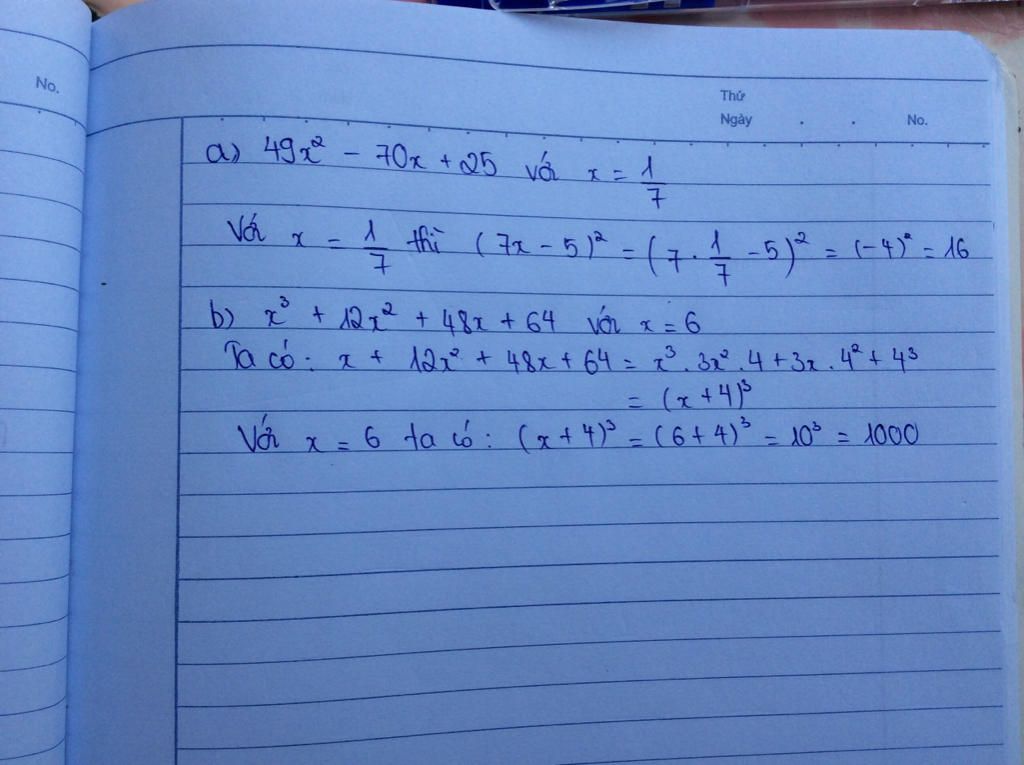 No.
Thứ
Ngày . . No.
a) 49x² - 70x + 25 với x = 1/7
Với x = 1/7 thì (7x - 5)² = (7 . 1/7 - 5)² = (-4)² = 16
b) x³ + 12x² + 48x + 64 với x = 6
Ta có: x + 12x² + 48x + 64 = x³ . 3x² . 4 + 3x . 4² + 4³
= (x + 4)³
Với x = 6 ta có: (x + 4)³ = (6 + 4)³ = 10³ = 1000